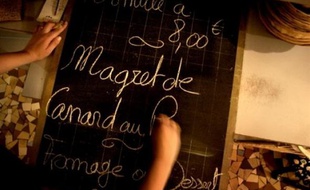 Formule à
8,00 €
Magret de
Canard au P
Fromage ou Dessert